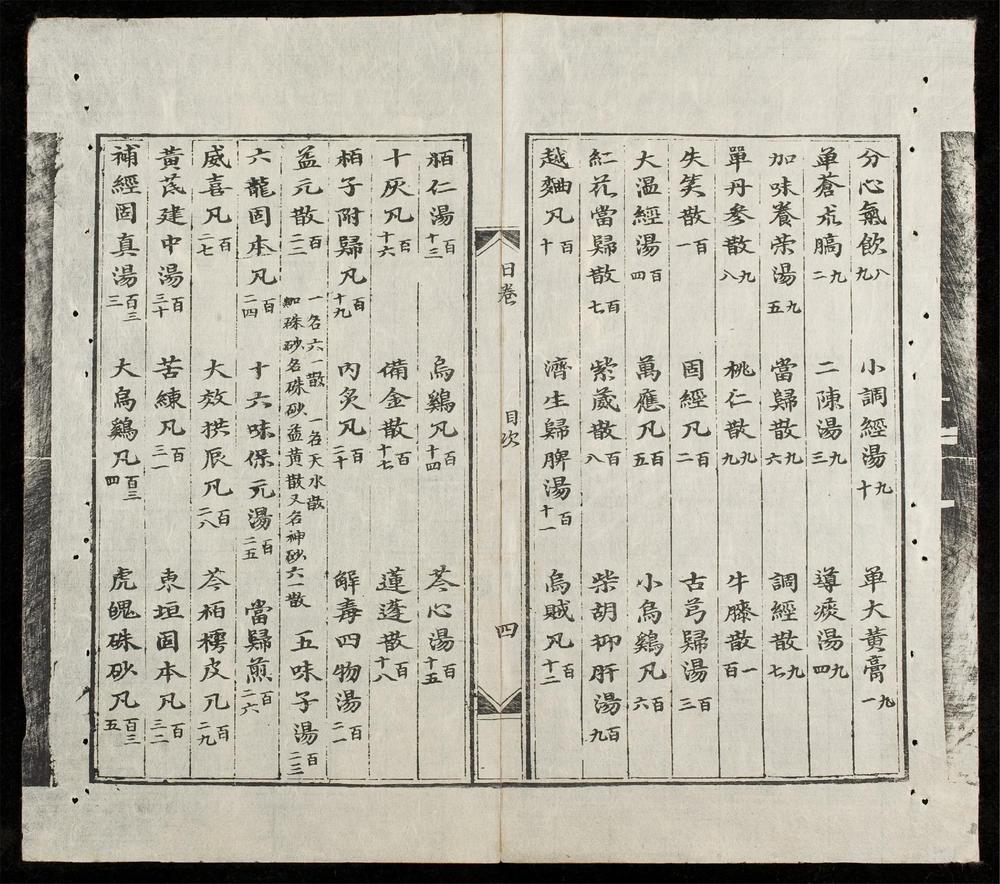 分心氣飲八九 小調經湯九十 单大黄膏九一
单蒼朮膏九二 二陳湯九三 導痰湯九四
加味養荣湯九五 當歸散九六 調經散九七
單丹參散九八 桃仁散九九 牛膝散一百
失笑散百一 固經凡百二 古芎歸湯百三
大温經湯百四 萬應凡百五 小烏鷄凡百六
紅花當歸散百七 紫葳散百八 柴胡抑肝湯百九
越麯凡百十 濟生歸脾湯百十一 烏賊凡百十二
日巻 目次 四
栢仁湯百十三 烏鷄凡百十四 苓心湯百十五
十灰凡百十六 備金散百十七 蓮蓬散百十八
栢子附歸凡百十九 內炙凡百二十 解毒四物湯百二一
益元散百二二 一名六一散 一名天水散 加硃砂名硃砂益黄散又名神砂六一散 五味子湯百二三
六龍固本凡百二四 十六味保元湯百二五 當歸煎百二六
威喜凡百二七 大效拱辰凡百二八 苓栢樗皮凡百二九
黃芪建中湯百三十 苦練凡百三一 東垣固本凡百三二
補經固真湯百三三 大烏鷄凡百三四 虎魄硃砂凡百三五